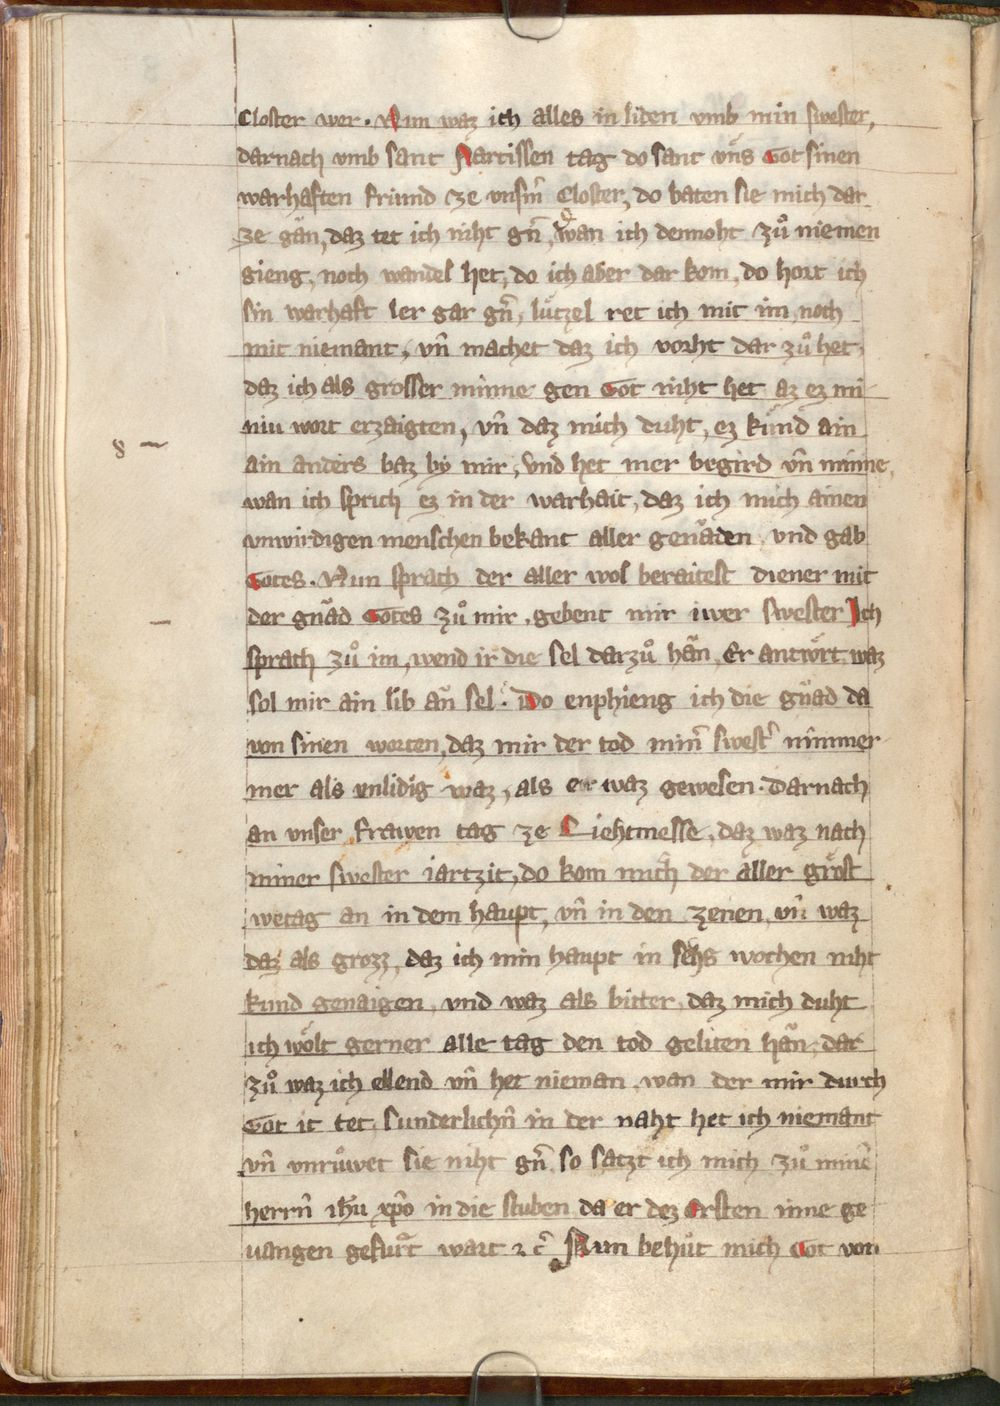 Closter wer. Nun waz ich alles in liden vmb min swester,
darnach vmb sant Narcissen tag do sant vns Got sinen
warhaften friund ze vnsm̄ Closter, do baten sie mich dar
ze gãn, daz tet ich niht gñ, wan ich dennoht zuͦ niemen
gieng, noch wandel het, do ich aber dar kom, do hort ich
sin warhaft ler gar gñ, lützel ret ich mit im, noch
mit niemant, vñ machet daz ich vorht dar zuͦ het,
daz ich als grosser minne gen Got niht het az ez mi
niu wort erzaigten, vñ daz mich duht, ez kund ain
ain anders baz by mir, vnd het mer begird vñ minne,
wan ich sprich ez in der warhait, daz ich mich ainen
vnwirdigen menschen bekant aller genãden vnd gab
Gotes. Nun sprach der aller wol beraitest diener mit
der gnãd Gotes zuͦ mir, gebent mir iwer swester Ich
sprach zuͦ im, wend ir die sel darzuͦ hãn, Er antwürt waz
sol mir ain lib ãn sel. Do enphieng ich die gnad da
von sinen worten, daz mir der tod min̄ swest̄ nimmer
mer als vnlidig waz, als er waz gewesen. Darnach
an vnser frawen tag ze Liehtmesse, daz waz nach
miner swester iartzit, do kom mich der aller gröst
wetag an in dem haupt, vñ in den zenen, vñ waz
daz als grozz, daz ich min haupt in sehs wochen niht
kund genaigen, vnd waz als bitter, daz mich duht
ich wölt gerner alle tag den tod geliten hãn, dar
zuͦ waz ich ellend vñ het nieman, wan der mir durch
Got it tet, sunderlichñ in der naht het ich niemant
vñ vnruͦwet sie niht gñ, so satzt ich mich zuͦ mine̅
herrñ ihu xpo in die stuben da er dez ersten inne ge
uangen gefurt wart ⁊ c̄ Nun behuͤt mich Got von